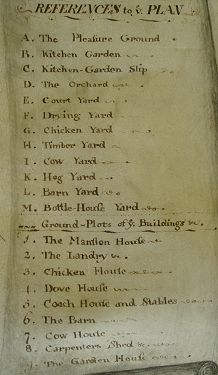 REFERENCES to ye. PLAN
A. The Pleasure Ground
B. Kitchen Garden
C. Kitchen-Garden Slip
D. The Orchard
E. Court Yard
F. Drying Yard
G. Chicken Yard
H. Timber Yard
I. Cow Yard
K. Hog Yard
L. Barn Yard
M. Bottle-House Yard
Ground-Plots of ye. Buildings &c.
1. The Mansion House
2. The Landry &c.
3. Chicken House
4. Dove House
5. Coach House and Stables
6. The Barn
7. Cow House
8. Carpenters Shed &c
9. The Garden House